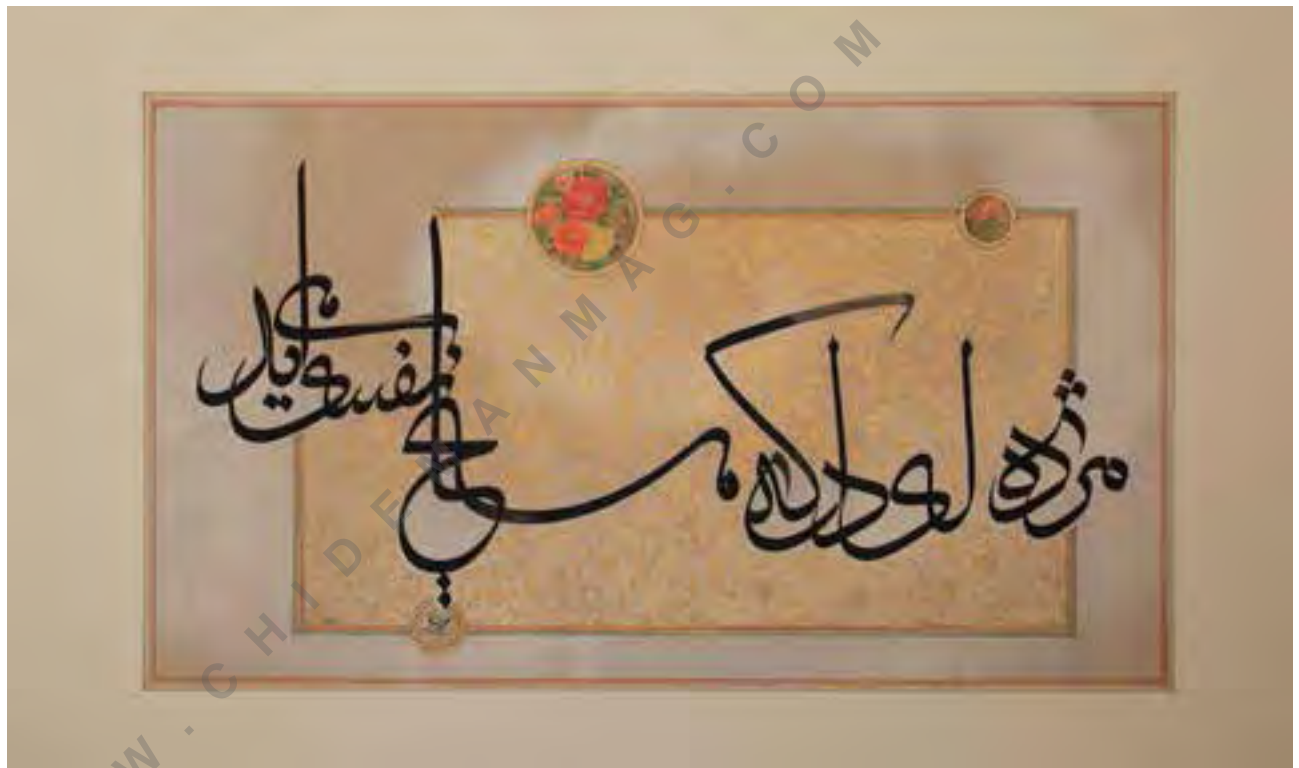 مژده ای دل که مسیحا نفسی می آید
W.CHIDEMANMAG.COM